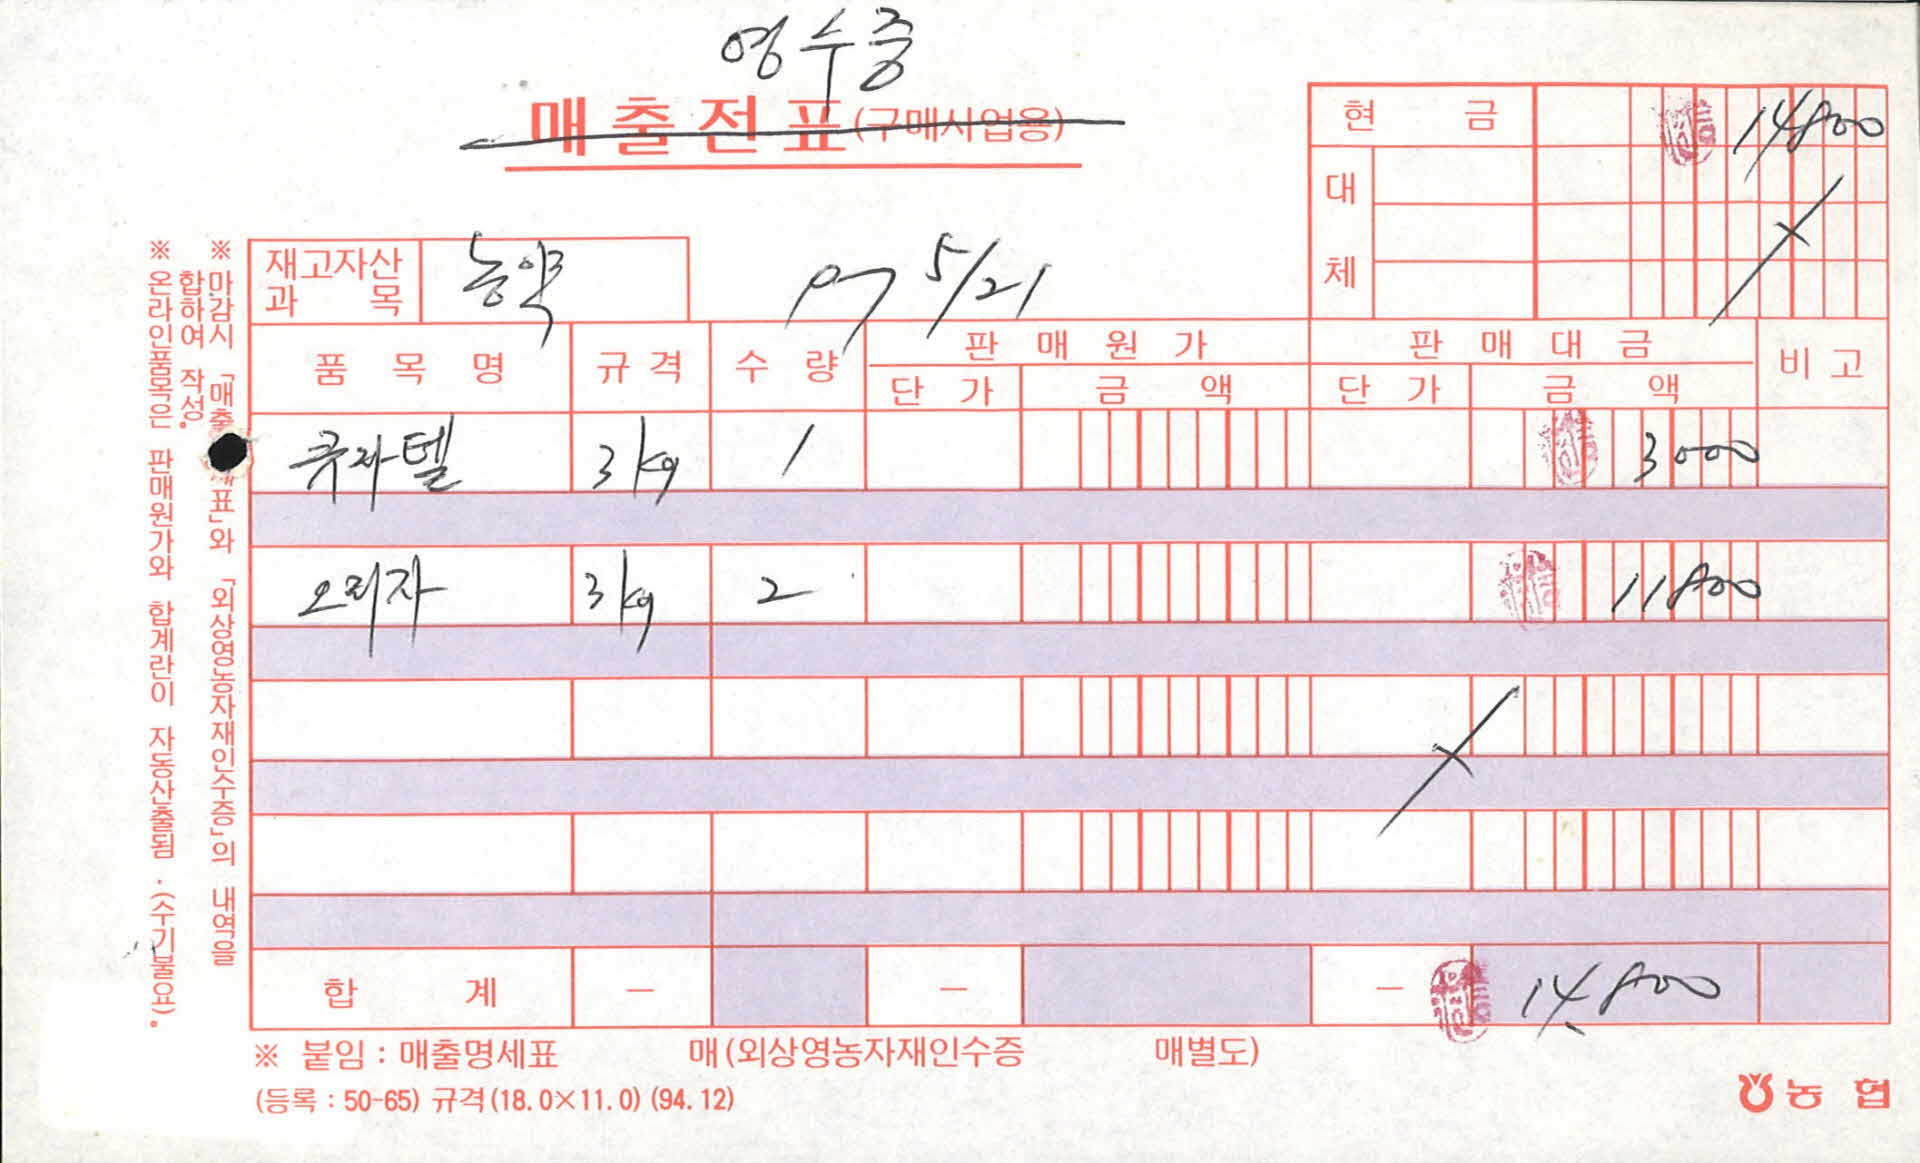 영수증
매출전표(구매사업용)
현 금 14800
대 체
재고자산 과목 농약
97 5/21
품목명 규격 수량 판매원가 판매대금 비고
단가 금액 단가 금액
쿠라텔 3kg 1 3000
오리자 3kg 2 11800
합계 - - - 14,800
※ 붙임 : 매출명세표 매(외상영농자재인수증 매별도)
(등록 : 50-65) 규격(18.0×11.0) (94.12)
농협
※ 마감시 「매출 표」와 「외상영농자재인수증」의 내역을
합하여 작성.
※ 온라인품목은 판매원가와 합계란이 자동산출됨. (수기불요).